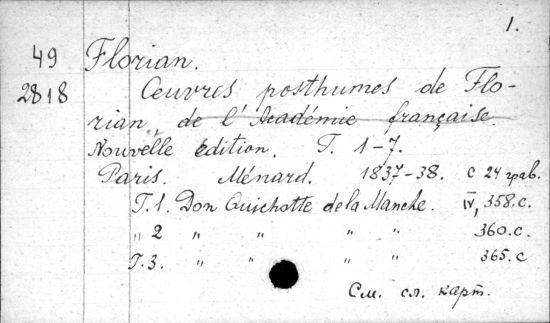 1.
49 Florian.
2818 Œuvres posthumes de Flo-
rian, de l'Académie française.
Nouvelle édition. T. 1-7.
Paris. Ménard. 1837-38. с 24 грав.
T.1. Don Quichotte de la Manche. IV, 358.с.
" 2 " " " " 360.с.
T.3. " " " " 365.с
См. сл. карт.